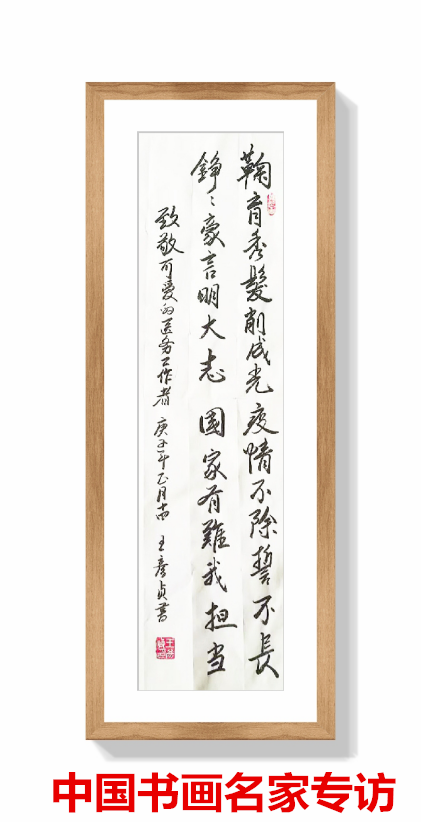 鞠育秀髮削成光疫情不除誓不長
錚〻豪言明大志國家有難我担当
致敬可爱的医务工作者 庚子年乙月 王彦贞書
中国书画名家专访